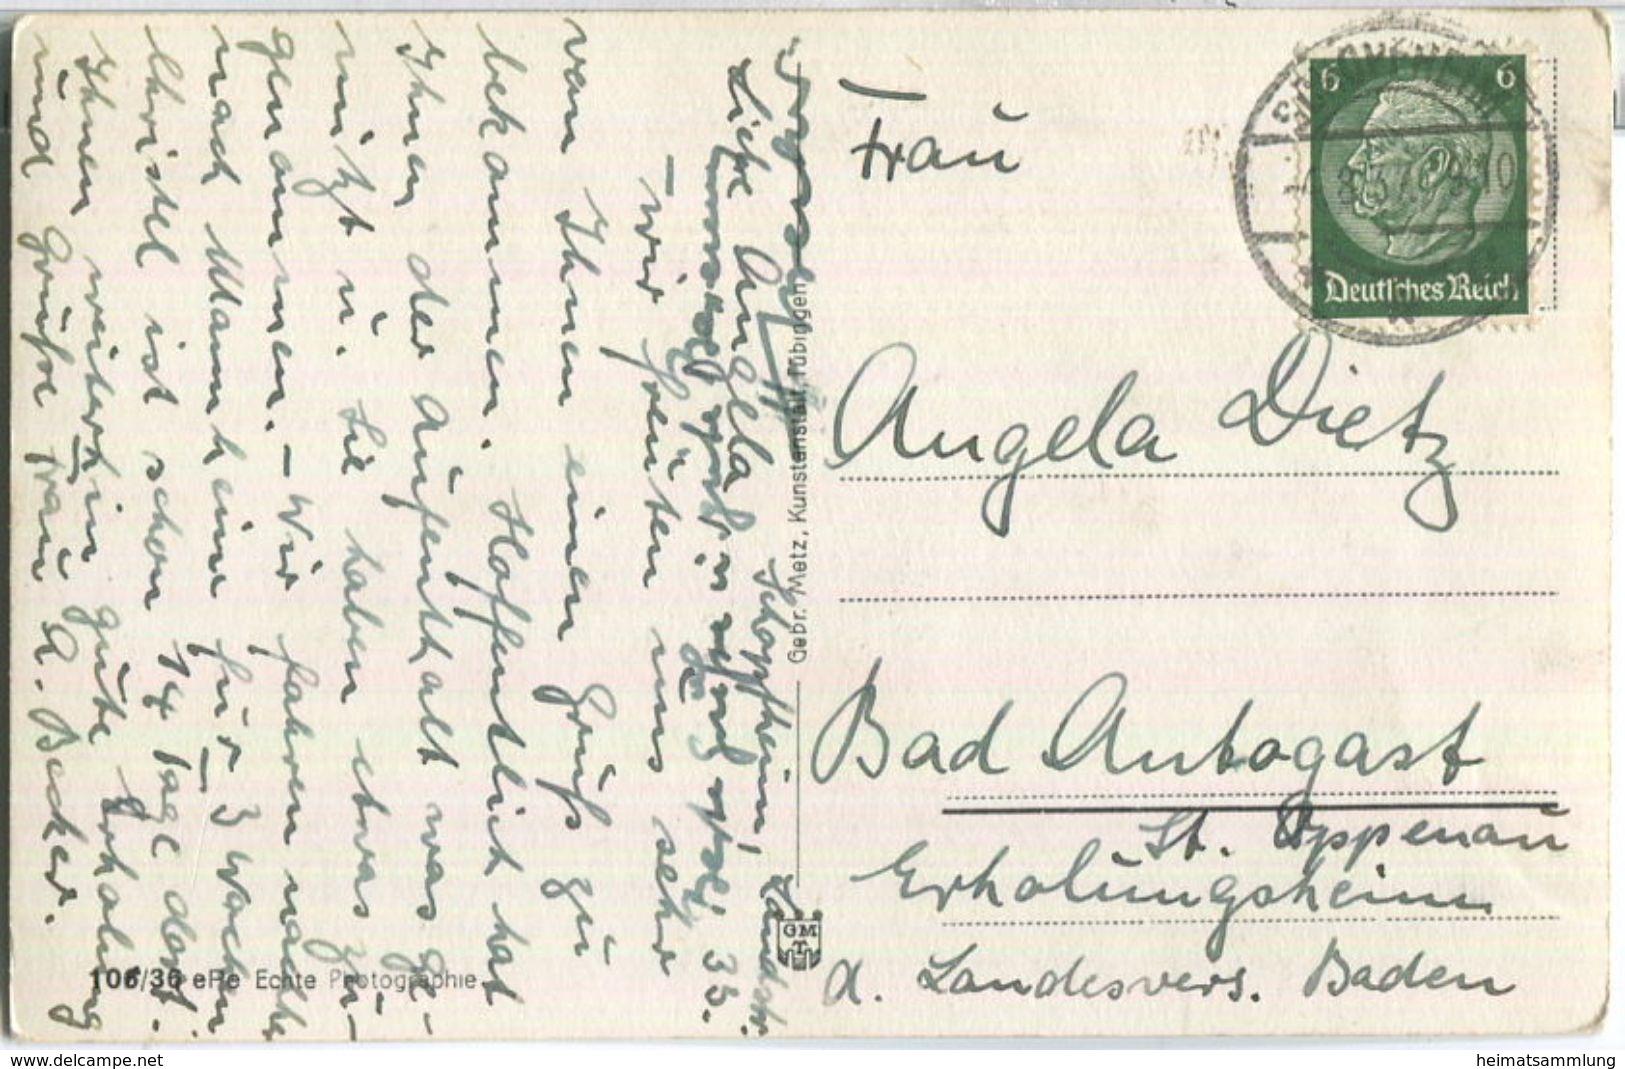 Schopfheim, Landstr. 33.
Liebe Angela!
– wir freuten uns sehr
von Ihnen einen Gruß zu
bekommen. Hoffentlich hat
Ihnen der Aufenthalt was ge-
nützt u. Sie haben etwas zu-
genommen. – Wir fahren nächste
nach Mannheim für 3 Wochen
Christel ist schon 14 Tage dort.
Ihnen weiterhin gute Erholung
und Grüße Frau A. Becker.
Gebr. Metz, Kunstanstalt, Tübingen
GMT
106/36 ePe Echte Photographie
6 6
Deutsches Reich
Frau
Angela Dietz
Bad Antogast
St. Oppenau
Erholungsheim
d. Landesvers. Baden
delcampe.net
heimatsammlung